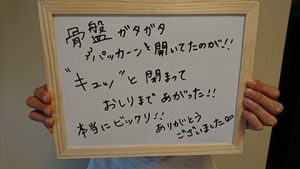 骨盤ガタガタ
パッカーンと開いてたのが!!
"キュッ"と閉まって
おしりまであがった!!
本当にビックリ!!
ありがとう
ございました∞